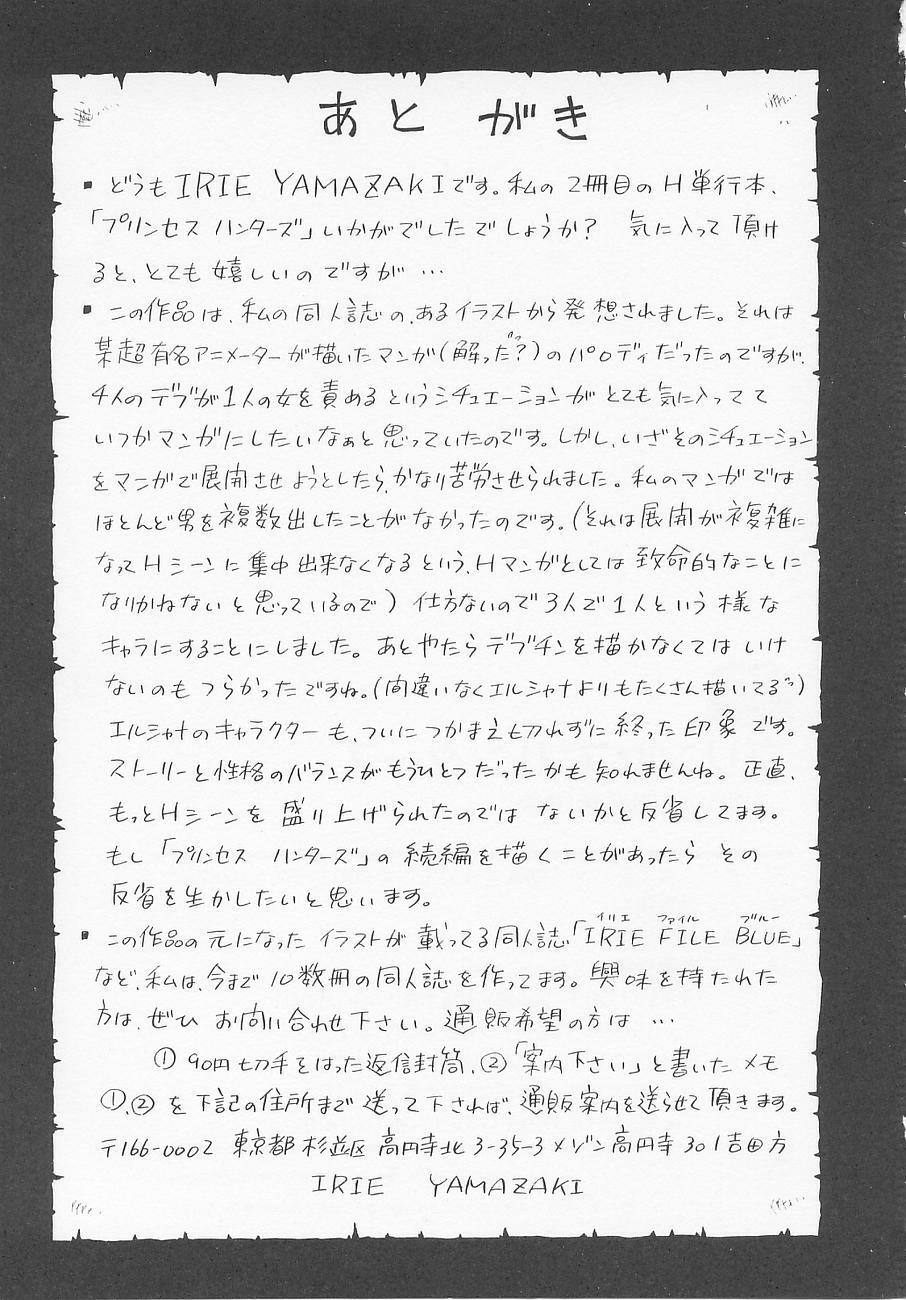 あとがき
▪ どうも IRIE YAMAZAKIです。私の2冊目のH単行本、
「プリンセス ハンターズ」いかがでしたでしょうか? 気に入って頂け
ると、とても嬉しいのですが…
▪ この作品は、私の同人誌の、あるイラストから発想されました。それは
某超有名アニメーターが描いたマンガ(解っだ?)のパロディだったのですが、
4人のデブが1人の女を責めるというシチュエーションがとても気に入ってて
いつかマンガにしたいなぁと思っていたのです。しかし、いざそのシチュエーション
をマンガで展開させようとしたら、かなり苦労させられました。私のマンガでは
ほとんど男を複数出したことがなかったのです。(それは展開が複雑に
なってHシーンに集中出来なくなるという、Hマンガとしては致命的なことに
なりかねないと思っているので) 仕方ないので3人で1人という様な
キャラにすることにしました。あとやたらデブチンを描かなくてはいけ
ないのもつらかったですね。(間違いなくエルシャナよりもたくさん描いてるッ)
エルシャナのキャラクターも、ついにつかまえ切れずに終った印象です。
ストーリーと性格のバランスがもうひとつだったかも知れませんね。正直、
もっとHシーンを盛り上げられたのではないかと反省してます。
もし「プリンセス ハンターズ」の続編を描くことがあったらその
反省を生かしたいと思います。
▪ この作品の元になったイラストが載ってる同人誌「IRIE FILE BLUE」
イリエ ファイル ブルー
など、私は、今まで10数冊の同人誌を作ってます。興味を持たれた
方は、ぜひお問い合わせ下さい。通販希望の方は…
① 90円切手をはった返信封筒、②「案内下さい」と書いたメモ
①、②を下記の住所まで送って下されば、通販案内を送らせて頂きます。
〒166-0002 東京都杉並区高円寺北3-35-3メゾン高円寺301吉田方
IRIE YAMAZAKI